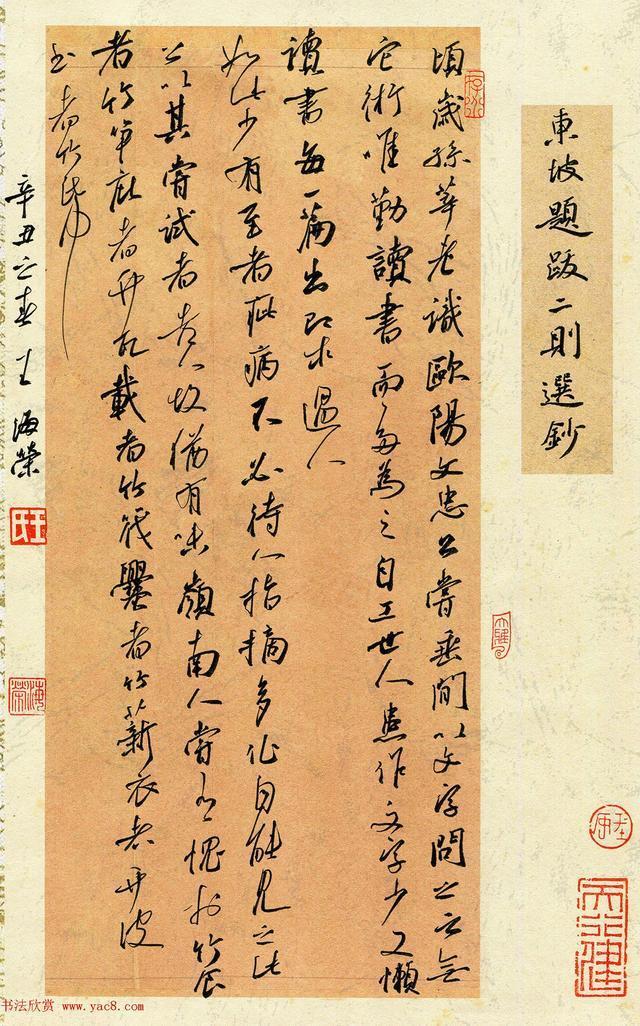 東坡題跋二則選鈔
頃歲孫莘老識歐陽文忠公嘗乘間以文字問之云無
它術唯勤讀書而多為之自工世人患作文字少又懶
讀書每一篇出即求過人
如此少有至者疵病不必待人指摘多作自能見之此
公以其嘗試者告人故猶有味嶺南人當有愧於竹食
者竹筍庇者竹瓦載者竹筏爨者竹薪衣者竹皮
書者竹紙
辛丑之春王海榮
天行健
海榮
书法欣赏 www.yac8.com